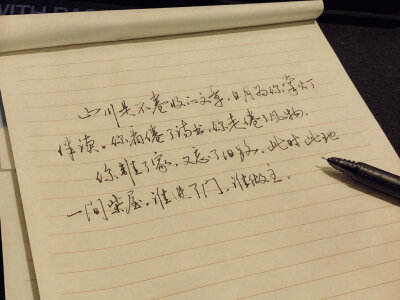 WITH BA
山川是不卷收的文章，日月为你掌灯
伴读。你看倦了诗书，你走倦了风物.
你离了家，又忘了旧路，此时此地
一间柴屋，谁进了门，谁做主.